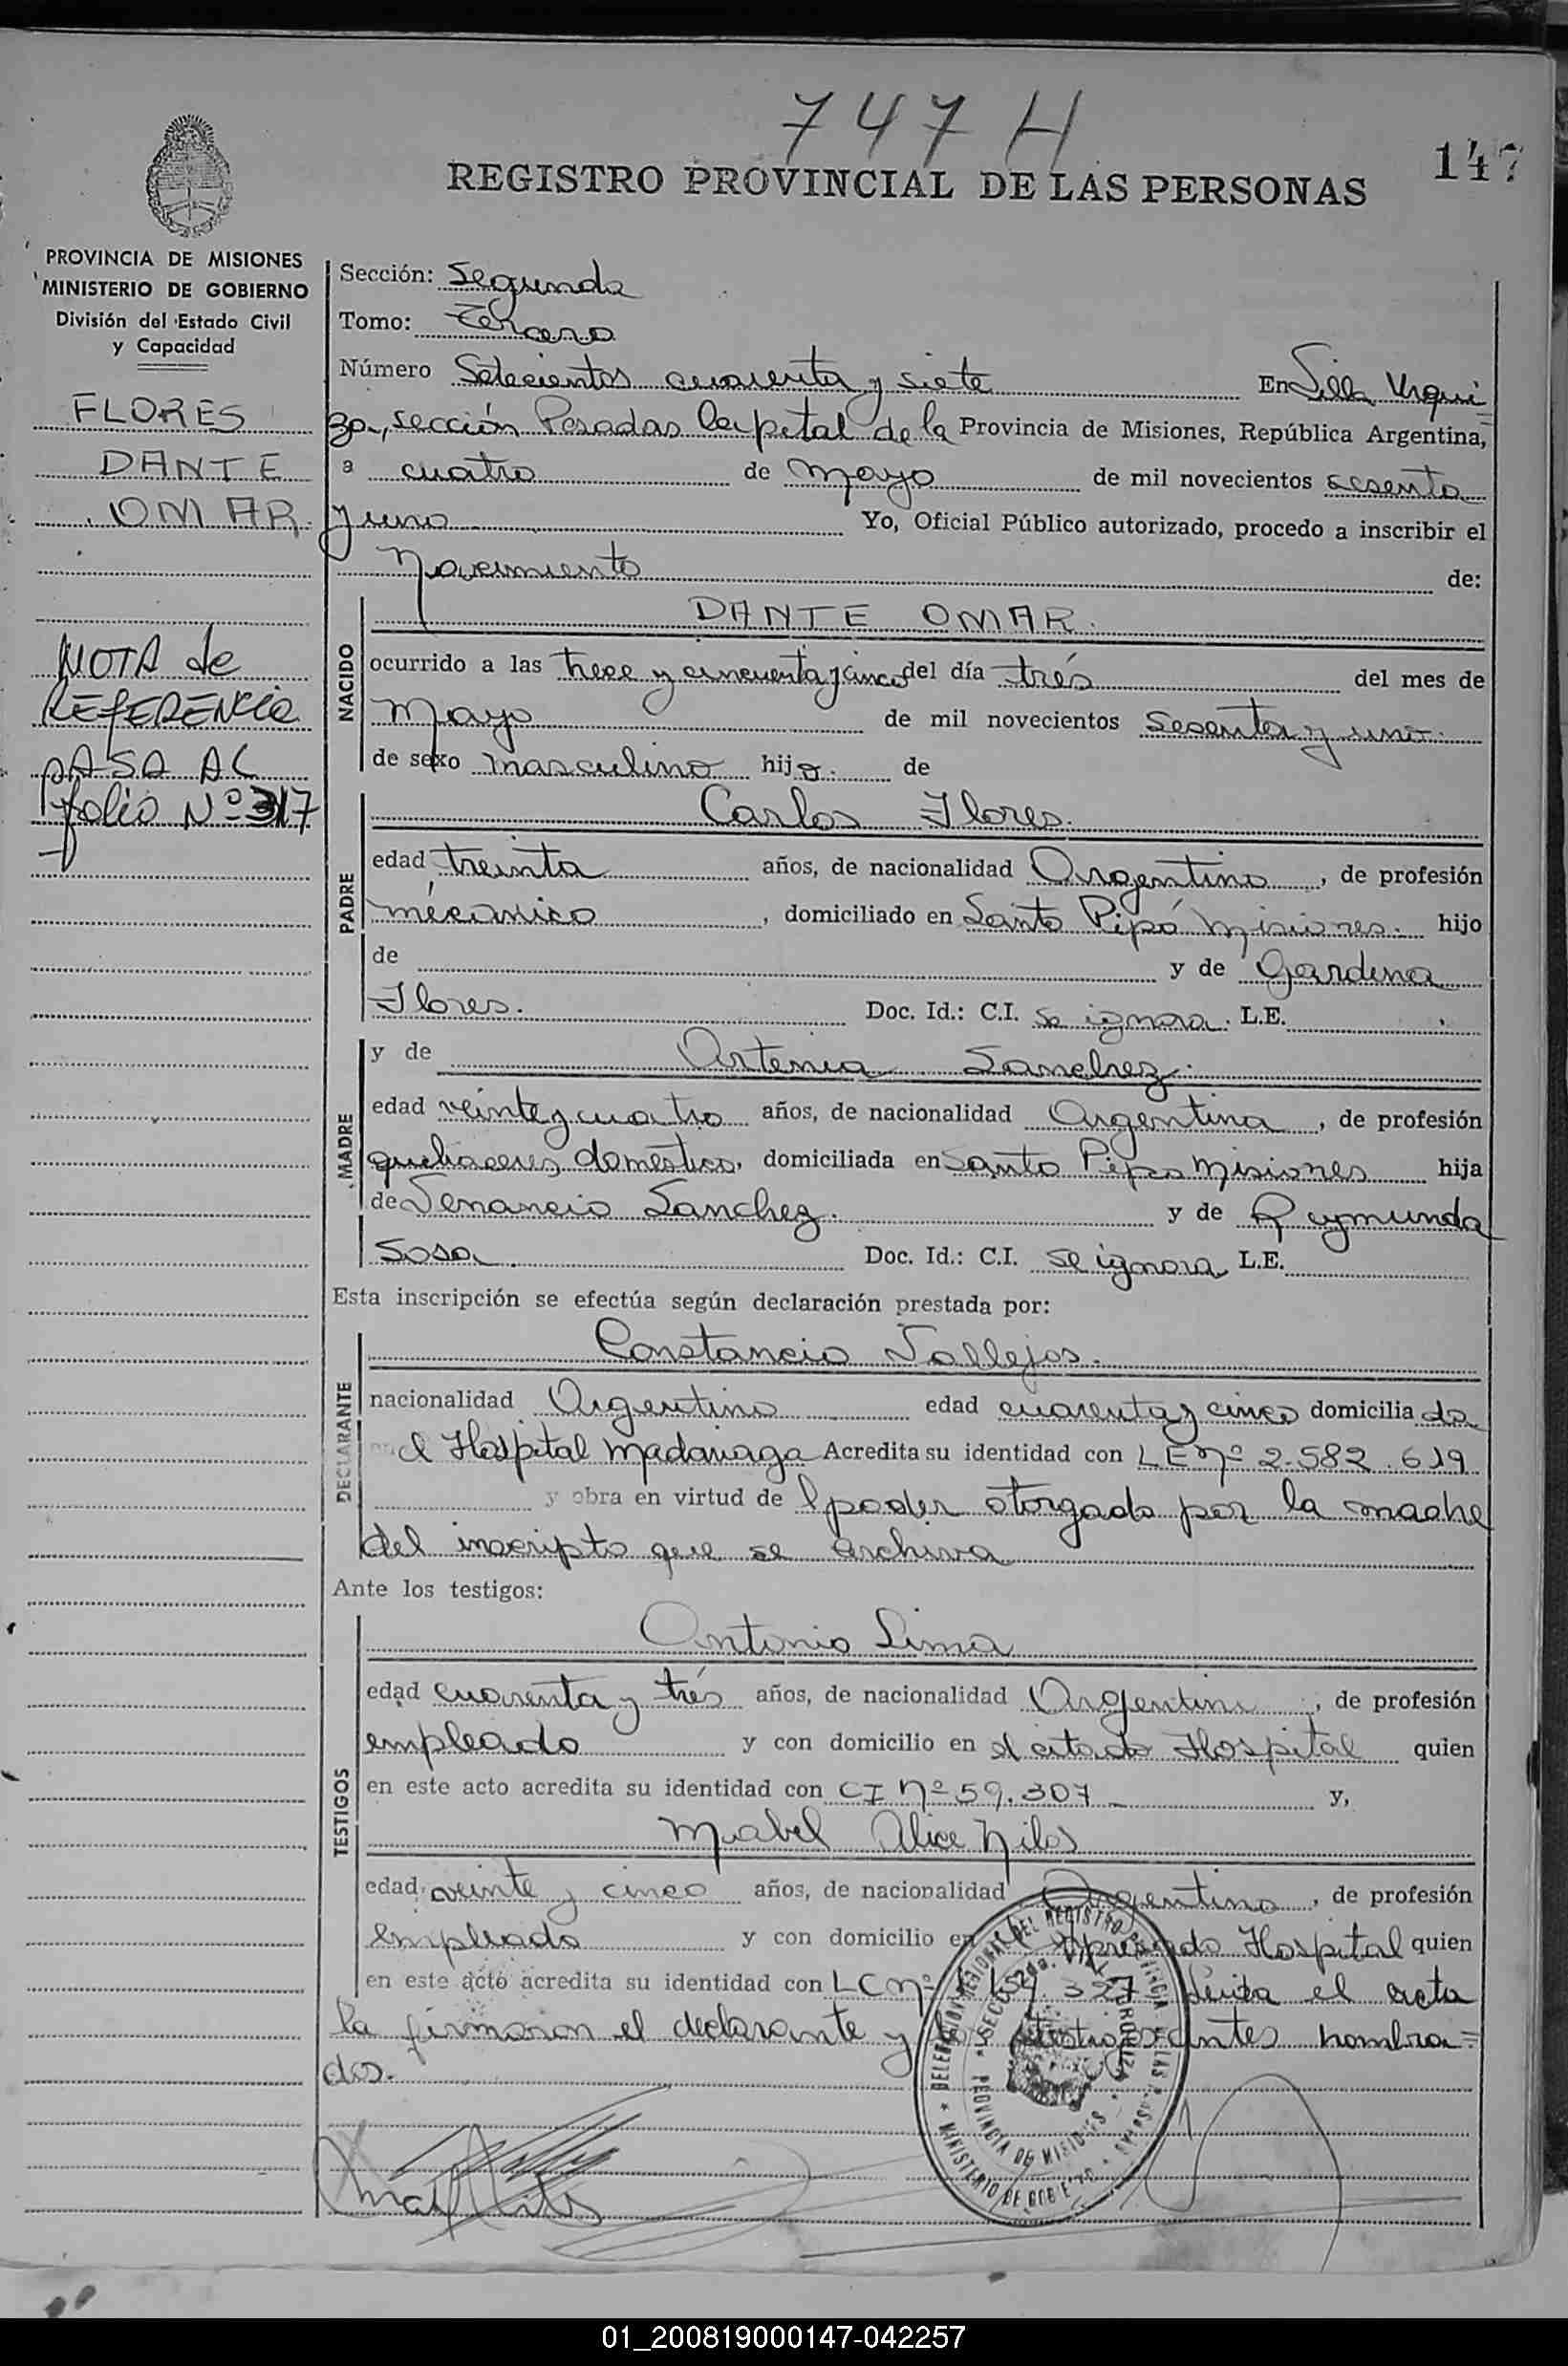 747 H
147
REGISTRO PROVINCIAL DE LAS PERSONAS
PROVINCIA DE MISIONES
MINISTERIO DE GOBIERNO
División del Estado Civil
y Capacidad
FLORES
DANTE
OMAR
NOTA de
REFERENCIA
PASA AL
folio Nº 317
Sección: Segunda
Tomo: Tercero
Número Setecientos cuarenta y siete En Villa Urqui
za, sección Posadas Capital de la Provincia de Misiones, República Argentina,
a cuatro de Mayo de mil novecientos sesenta
y uno Yo, Oficial Público autorizado, procedo a inscribir el
Nacimiento de:
NACIDO
DANTE OMAR.
ocurrido a las trece y cincuenta y cinco del día trés del mes de
Mayo de mil novecientos sesenta y uno.
de sexo masculino hijo. de
PADRE
Carlos Flores.
edad treinta años, de nacionalidad Argentino, de profesión
mécanico, domiciliado en Santo Pipó Misiones. hijo
de y de Gardena
Flores. Doc. Id.: C.I. se ignora. L.E.
MADRE
y de Artemia Sanchez.
edad veinte y cuatro años, de nacionalidad Argentina, de profesión
quehaceres domestico, domiciliada en Santo Pipo Misiones hija
de Venancio Sanchez. y de Raymunda
Sosa. Doc. Id.: C.I. se ignora L.E.
Esta inscripción se efectúa según declaración prestada por:
DECLARANTE
Constancio Vallejos.
nacionalidad Argentino edad cuarenta y cinco domiciliado
en el Hospital Madariaga Acredita su identidad con LE nº 2.582.619
y obra en virtud del poder otorgado por la madre
del inscripto que se archiva
Ante los testigos:
TESTIGOS
Antonio Lima
edad cuarenta y trés años, de nacionalidad Argentino, de profesión
empleado y con domicilio en el citado Hospital quien
en este acto acredita su identidad con CI nº 59.307 y,
Mabel Alice Nilos
edad veinte y cinco años, de nacionalidad Argentina, de profesión
empleado y con domicilio en el expresado Hospital quien
en este acto acredita su identidad con LC nº 327 Leida el acta
la firmaron el declarante y los testigos antes nombra=
dos.
DELEGACION REGIONAL DEL REGISTRO PROVINCIAL DE LAS PERSONAS
MINISTERIO DE GOBIERNO
SECC. 2da. VILLA URQUIZA
PROVINCIA DE MISIONES
01_200819000147-042257